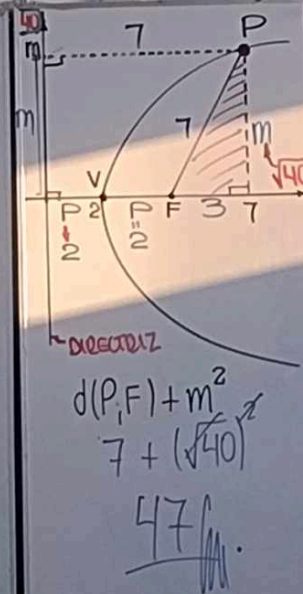 √40
m
7
P
m
7
m
√40
V
P 2 P F 3 7
2
" 2
DIRECTRIZ
d(P,F)+m²
7+(√40)²
47